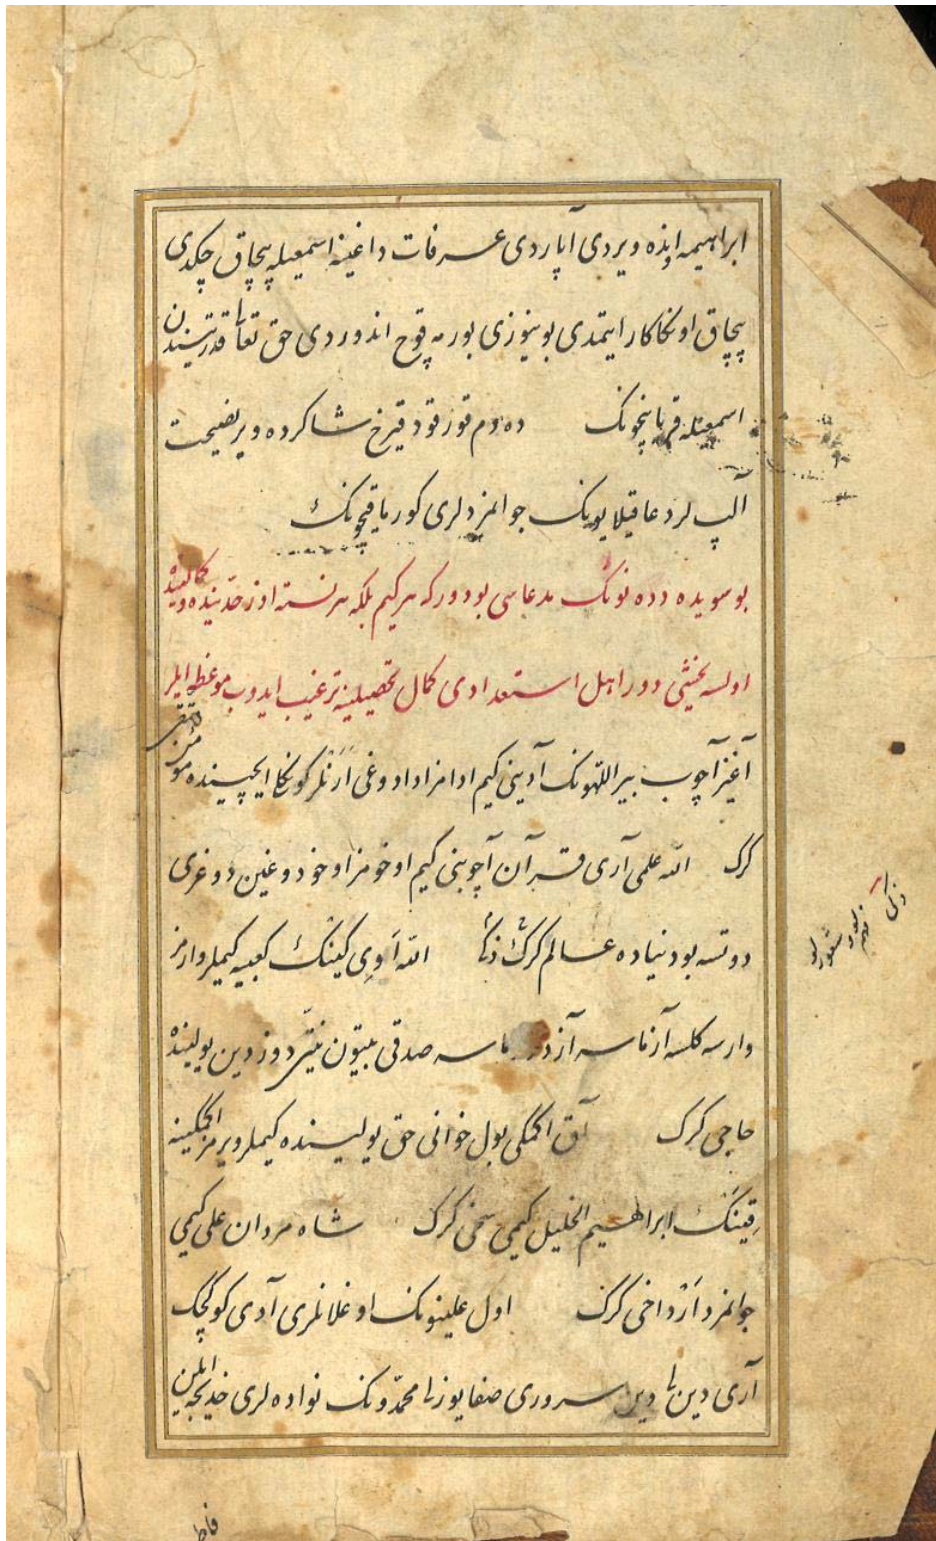 ابراهیمه ایذه ویردی آپاردی عرفات داغینه اسمعیله پچاق چکدی
پچاق اونکا کار ایتمدی بوینوزی بورمه قوچ اندوردی حق تعالی قدرتیندن
اسمعیله قربانچونک دده م قورقود قیرخ شاکرده ویر نصیحت
آلپ لر دعا قیلا یونک جوانمزدلری کور یاقچونک
بو سویده دده نونک مدعاسی بودور که هر کیم بلکه هر نسنه اوز حدینده و کمالینده
اولسه یخشی دور اهل استعدادی کمال تحصیلینه ترغیب ایدوب موعظه ایلر
آغیز آچوب بیر اللهونک آدینی کیم اوامز اداوغی ارنلر کونکا ایچینده مؤمن متقی
کرک الله علمی آری قرآن آچوبنی کیم اوخومز اوخودوغین دوغری
دوتسه بو دنیاده عالم کرک الله اوی کینک کعبیه کیملر وارمز
وارسه کلسه آزماسه صدقی بیتون نیتی دوز دین یولینده
حاجی کرک آق اکمکی بول خوانی حق یولینده کیملر ویرمز اکمکینه
ابراهیم الخلیل کیمی سخی کرک شاه مردان علی کیمی
جوانمزد ارداخی کرک اول علینونک اوغلانلری آدی کوکچک
آری دین دین سروری صفا یوزلی محمدونک نواده لری خدیجه ایلن
فاطمه